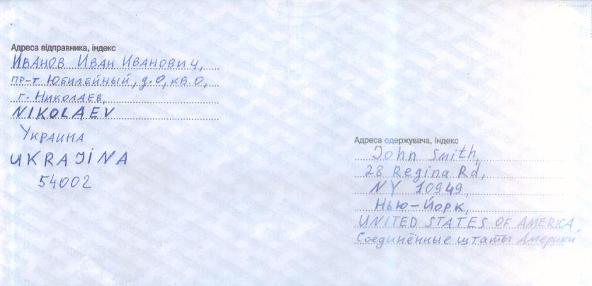 Адреса відправника, індекс
Иванов Иван Иванович,
пр-т Юбилейный, д.0, кв.0,
г. Николаев,
NIKOLAEV
Украина
UKRAJINA
54002
Адреса одержувача, індекс
John Smith,
28 Regina Rd,
NY 10949,
Нью-Йорк,
UNITED STATES OF AMERICA,
Соединённые штаты Америки